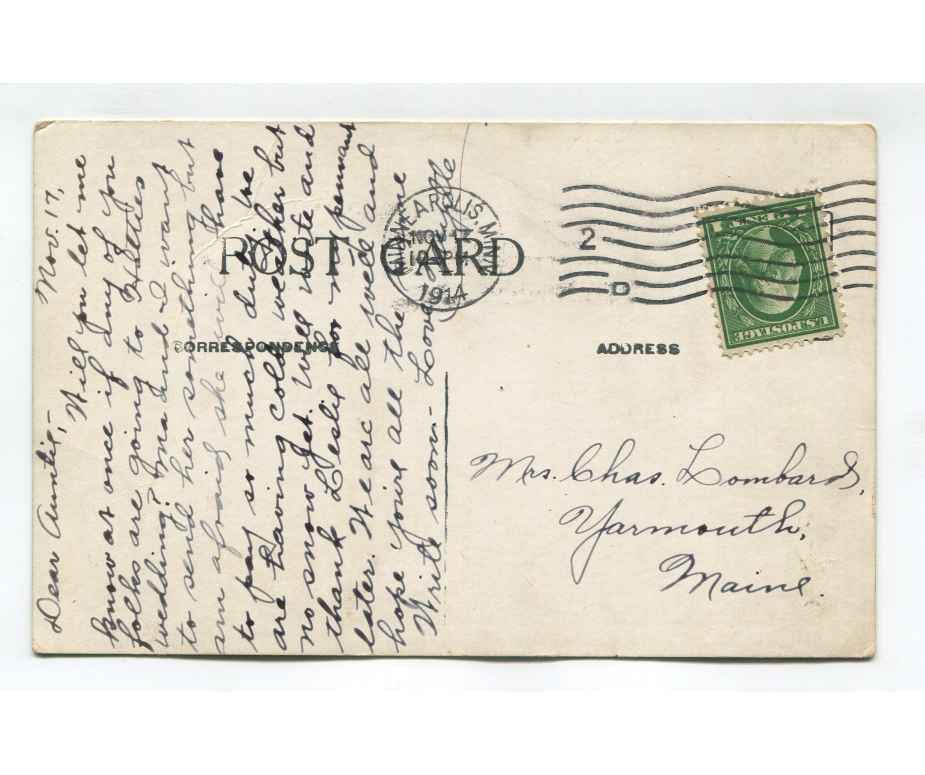 POST CARD
CORRESPONDENCE
Nov. 17,
Dear Auntie,-
Will you let me
know at once if any of you
folks are going to Hatties
wedding? Ma and I want
to send her something but
am afraid she will have
to pay so much duty. We
are having cold weather but
no snow yet. Will write and
thank Leslie for my pennant
later. We are all well and
hope you're all the same
Write soon- Lovingly
MINNEAPOLIS, MINN.
NOV 17
PM
1914
2
D
U.S. POSTAGE
ADDRESS
Mrs. Chas. Lombard,
Yarmouth,
Maine.